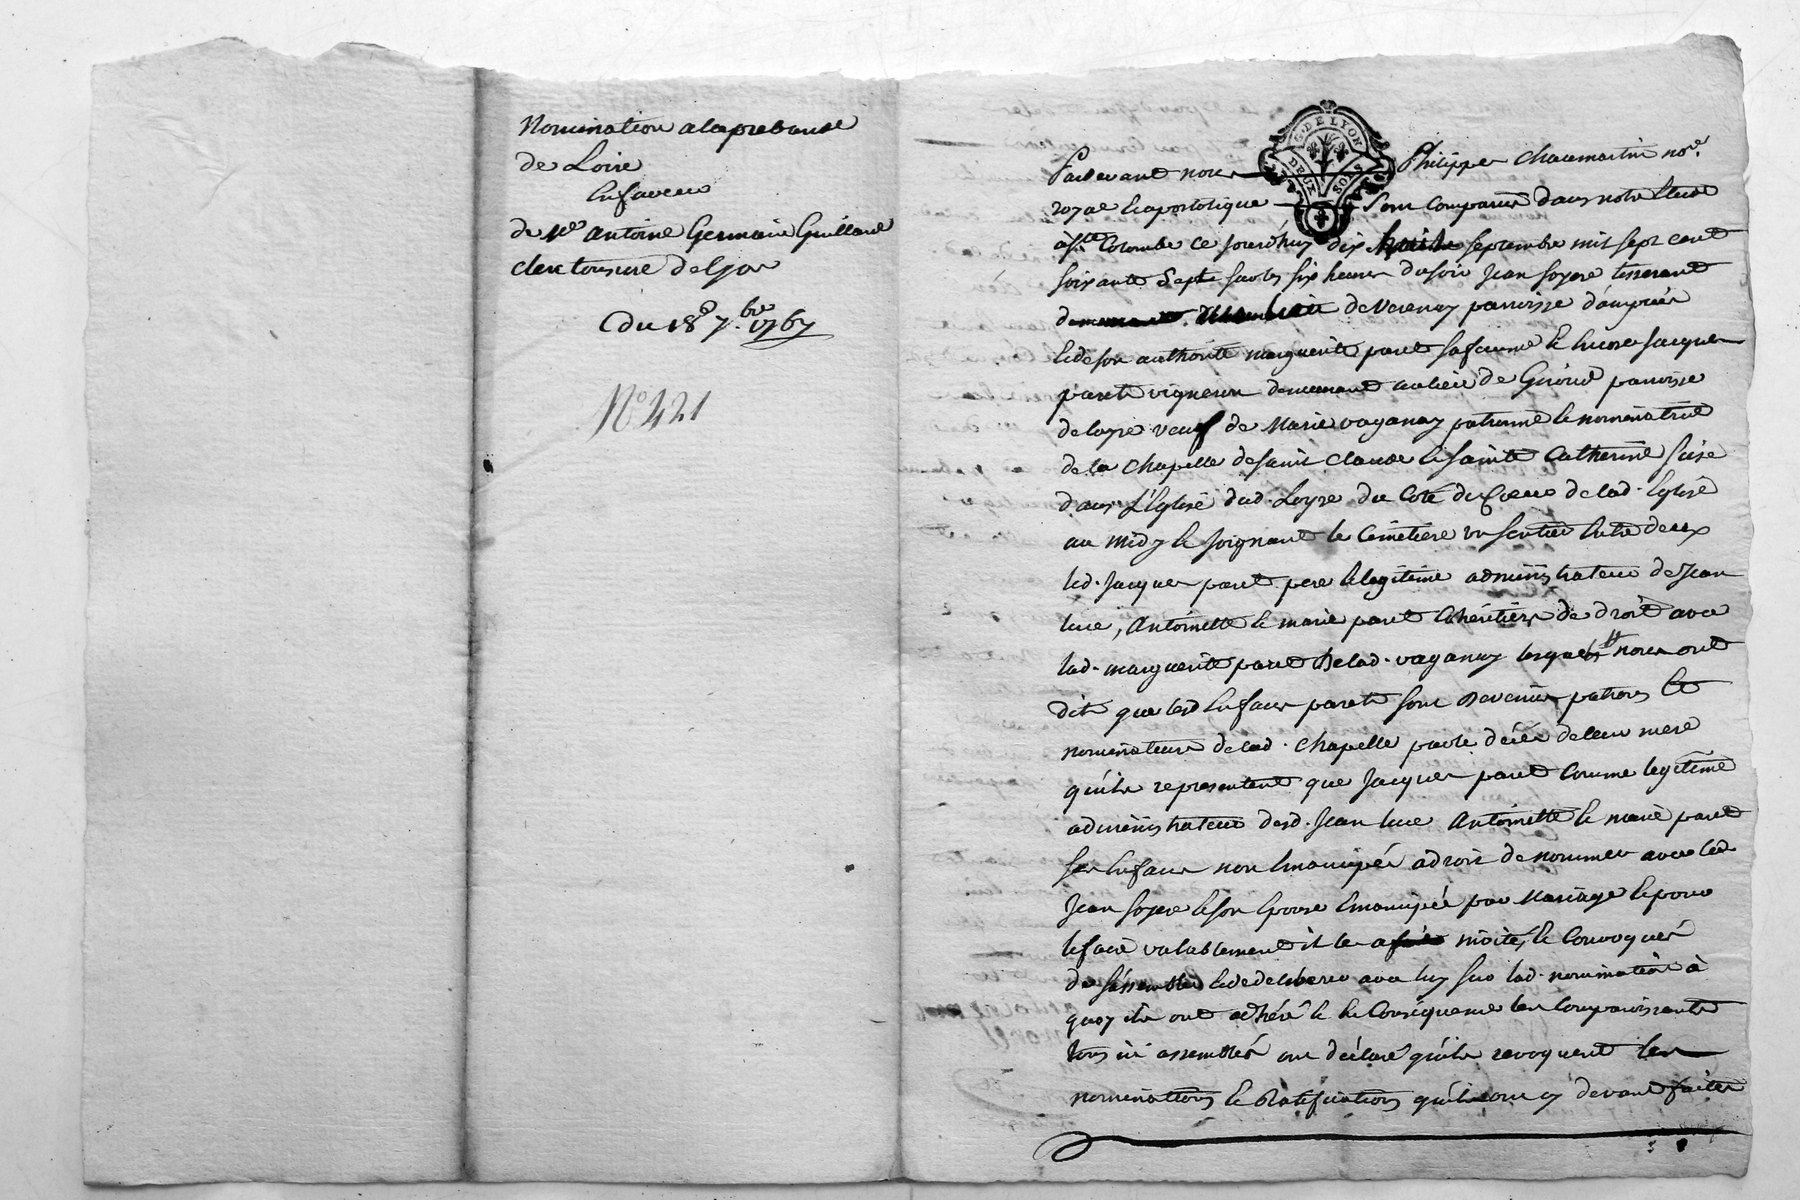 Nomination a la prebande
de Loire
En faveur
de Me Antoine Germain Guillard
clerc tonsuré de Lyon
Du 18e 7.bre 1767
N° 421
G. DE LYON
DEUX SOLS
Pardevant nous Philippe Chaumartin nore.
royal & apostolique Sont comparus dans notre Etude
à Ste Colombe ce jourd'huy dix huit septembre mil sept cent
soixante Sept sur les six heures du soir Jean Soyere tisserand
de Verenay parroisse d'ampuis
& de son authorité marguerite paret sa femme & encore Jacques
paret vigneron demeurant au lieu de Giroud parroisse
de Loyre veuf de Marie vaganay patronne & nominatrice
de la Chapelle de saint Claude & sainte Catherine scise
dans L'Eglise dud. Loyre du Coté du Coeur de lad. Eglise
au midy & joignant le Cimetiere un sentier Entre deux
led. Jacques paret pere & legitime administrateur de Jean
luc, Antoinette & marie paret Cohéritiers de droit avec
lad. marguerite paret de lad. vaganay lesquels nous ont
dit que lesd Enfans paret sont devenus patrons &
nominateurs de lad. Chapelle par le décés de leur mere
qu'ils representent que Jacques paret comme legitime
administrateur desd. Jean luc Antoinette & marie paret
ses Enfans non Emancipés a droit de nommer avec led
Jean Soyere & son Epouse Emancipée par Mariage & pour
le faire valablement il les a invités & Convoqués
de s'assembler & de deliberer avec luy sur lad. nomination à
quoy ils ont adhéré & En Conséquence les Comparoissants
tous ici assemblés ont déclaré qu'ils revoquent les
nominations & Ratifications qu'ils ont cy devant faites